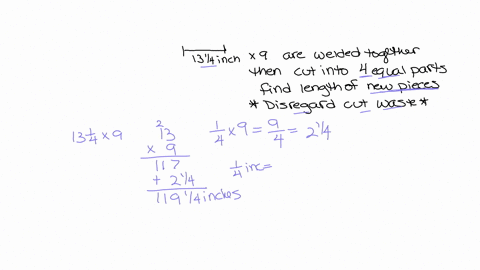 13 1/4 inch x 9 are welded together
then cut into 4 equal parts
find length of new pieces
* Disregard cut waste *
13 1/4 x 9
2
13
x 9
117
+ 2 1/4
119 1/4 inches
1/4 x 9 = 9/4 = 2 1/4
1/4 inc=